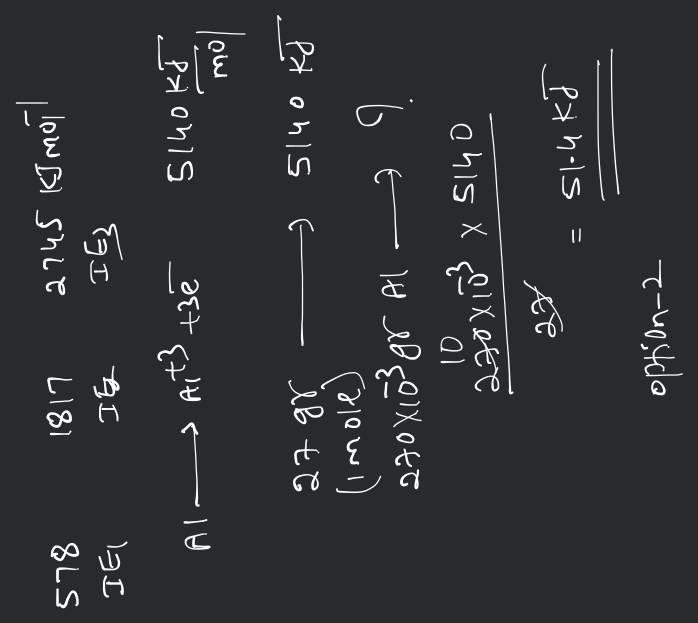 578 1817 2745 KJ mol⁻¹
IE₁ IE₂ IE₃
Al ⟶ Al⁺³ + 3e⁻ 5140 KJ/mol
27 gr ⟶ 5140 KJ
(1 mole)
270×10⁻³ gr Al ⟶ ?
10
270×10⁻³ × 5140
27
= 51.4 KJ
option-2